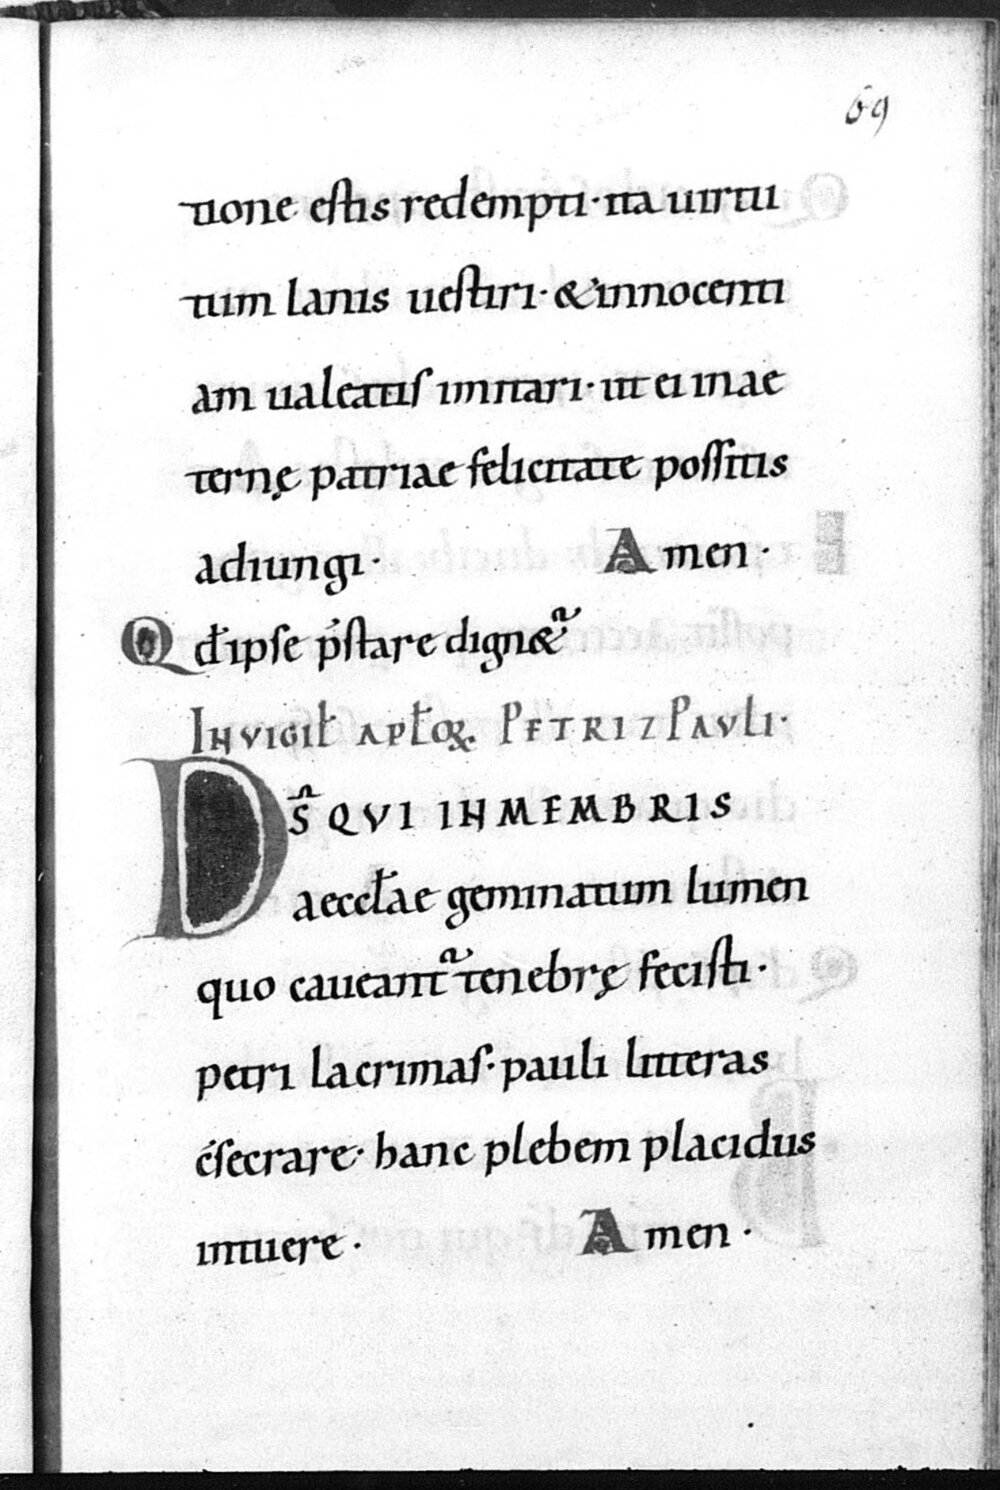 69
tione estis redempti · ita uirtu
tum lanis uestiri · & innocenti
am ualeatis imitari · ut ei in ae
ternę patriae felicitate possitis
adiungi · Amen ·
Qđ ipse p̄stare dign&᷑
IN VIGIL̄ APŁOꝜ PETRI ⁊ PAVLI ·
DS̄ QVI IN MEMBRIS
aeccłae geminatum lumen
quo caueant᷑ tenebrę fecisti ·
petri lacrimas · pauli litteras
c̄secrare · hanc plebem placidus
intuere · Amen ·